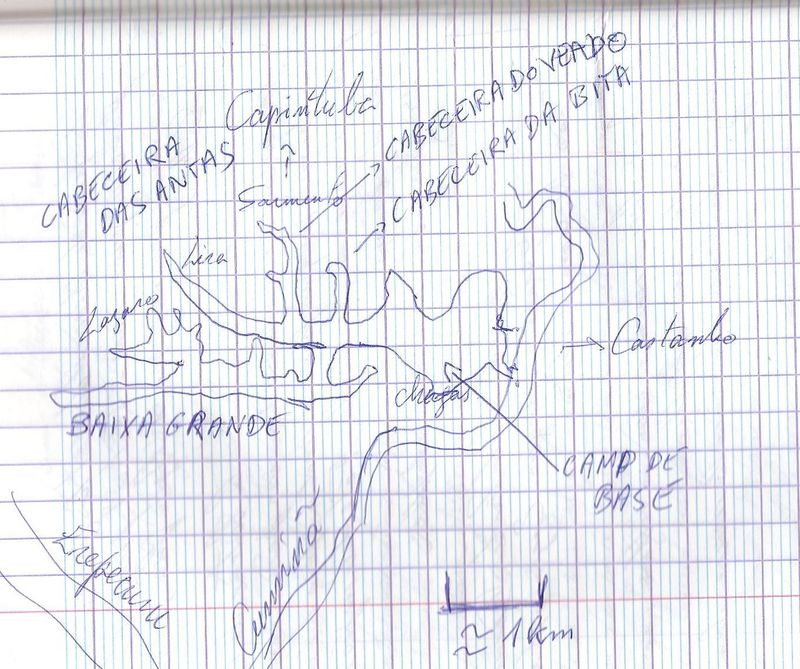 CABECEIRA DO VEADO
CABECEIRA DA BITA
Capintuba
CABECEIRA
DAS ANTAS
Sarmento
Lira
Lazaro
Castanho
BAIXA GRANDE
CAMP DE
BASE
Erepecuru
Cuminã
≈ 1 km